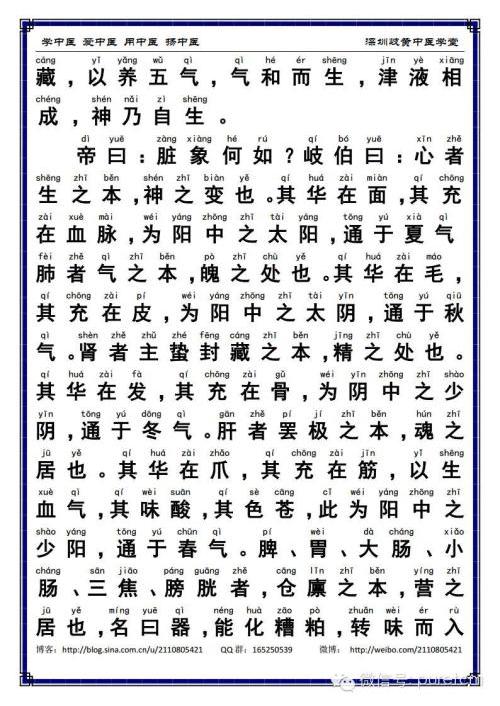 学中医 爱中医 用中医 扬中医 深圳岐黄中医学堂
cáng yǐ yǎng wǔ qì qì hé ér shēng jīn yè xiāng
藏，以养五气，气和而生，津液相
chéng shén nǎi zì shēng
成，神乃自生。
dì yuē zàng xiàng hé rú qí bó yuē xīn zhě
帝曰：脏象何如？岐伯曰：心者
shēng zhī běn shén zhī biàn yě qí huá zài miàn qí chōng
生之本，神之变也。其华在面，其充
zài xuè mài wéi yáng zhōng zhī tài yáng tōng yú xià qì
在血脉，为阳中之太阳，通于夏气
fèi zhě qì zhī běn pò zhī chù yě qí huá zài máo
肺者气之本，魄之处也。其华在毛，
qí chōng zài pí wéi yáng zhōng zhī tài yīn tōng yú qiū
其充在皮，为阳中之太阴，通于秋
qì shèn zhě zhǔ zhé fēng cáng zhī běn jīng zhī chù yě
气。肾者主蛰封藏之本，精之处也。
qí huá zài fà qí chōng zài gǔ wéi yīn zhōng zhī shào
其华在发，其充在骨，为阴中之少
yīn tōng yú dōng qì gān zhě pí jí zhī běn hún zhī
阴，通于冬气。肝者罢极之本，魂之
jū yě qí huá zài zhǎo qí chōng zài jīn yǐ shēng
居也。其华在爪，其充在筋，以生
xuè qì qí wèi suān qí sè cāng cǐ wéi yáng zhōng zhī
血气，其味酸，其色苍，此为阳中之
shào yáng tōng yú chūn qì pí wèi dà cháng xiǎo
少阳，通于春气。脾、胃、大肠、小
cháng sān jiāo páng guāng zhě cāng lǐn zhī běn yíng zhī
肠、三焦、膀胱者，仓廪之本，营之
jū yě míng yuē qì néng huà zāo pò zhuǎn wèi ér rù
居也，名曰器，能化糟粕，转味而入
博客：http://blog.sina.com.cn/u/2110805421 QQ 群：165250539 微博：http://weibo.com/2110805421
微信号: